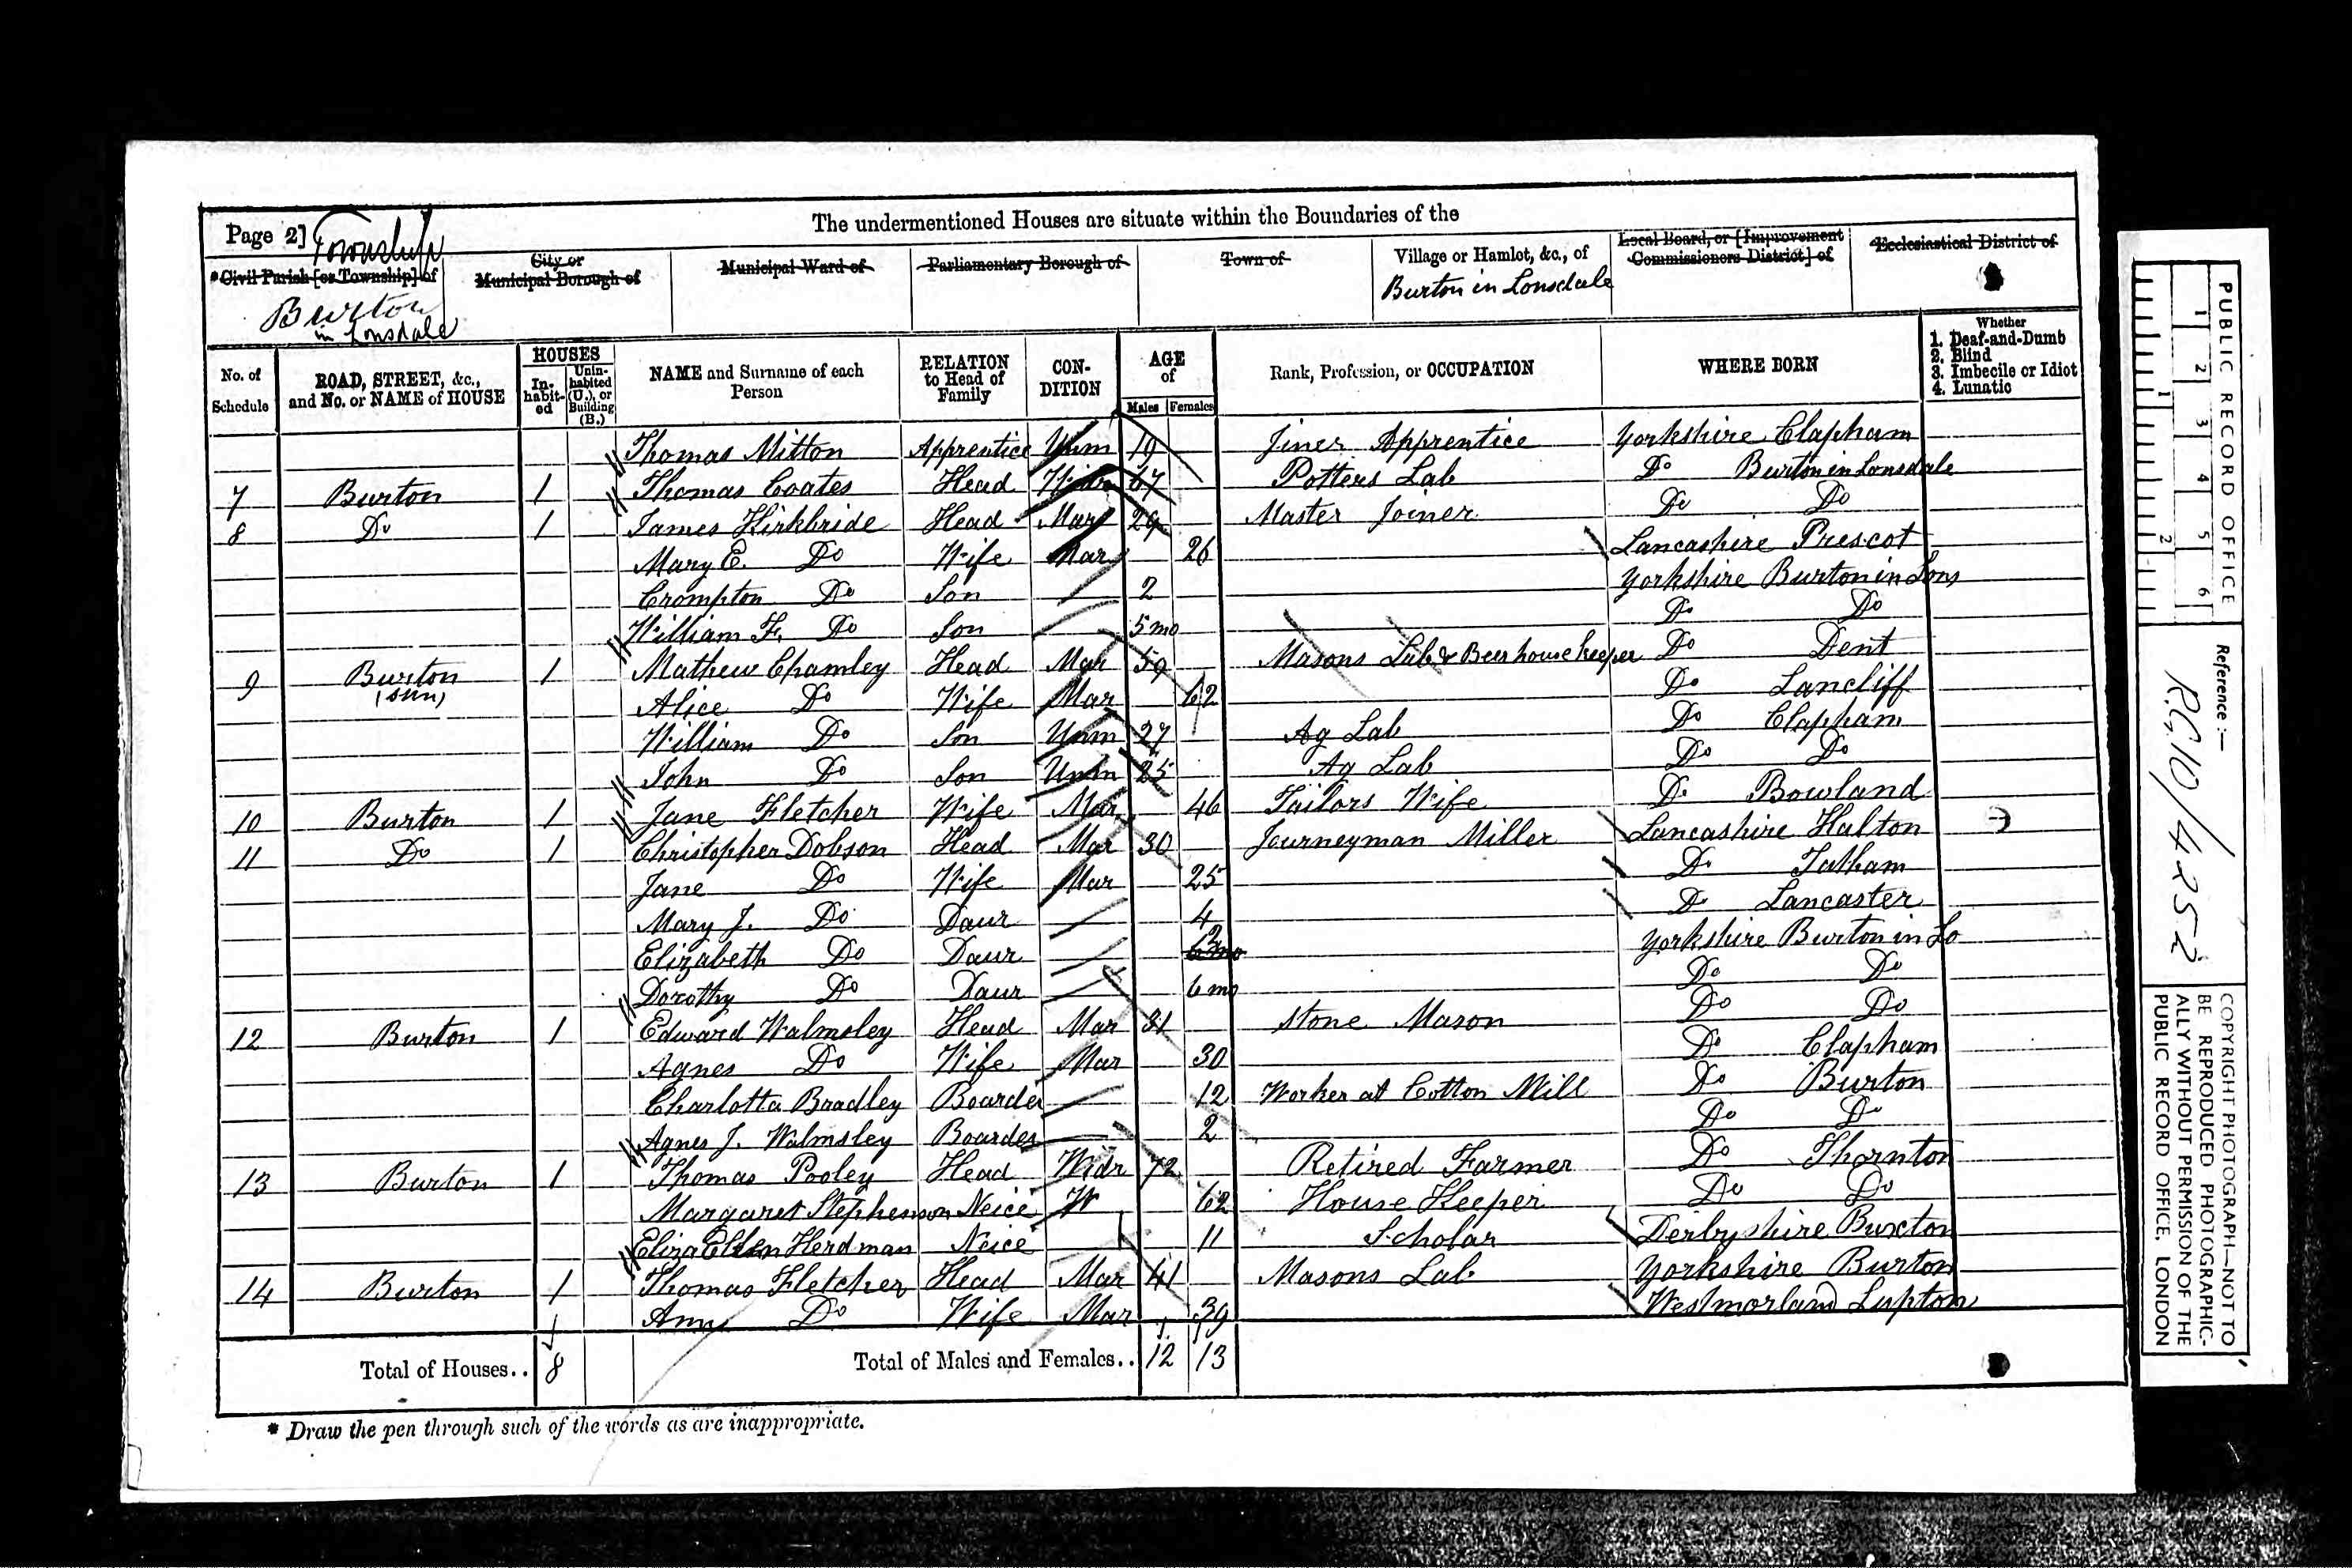 Page 2] Township The undermentioned Houses are situate within the Boundaries of the
*Civil Parish [or Township] of City or Municipal Borough of Municipal Ward of Parliamentary Borough of Town of Village or Hamlet, &c., of Local Board, or [Improvement Commissioners District] of Ecclesiastical District of
Burton in Lonsdale Burton in Lonsdale
No. of Schedule ROAD, STREET, &c., and No. or NAME of HOUSE HOUSES Inhabited Uninhabited (U.), or Building (B.) NAME and Surname of each Person RELATION to Head of Family CONDITION AGE of Males Females Rank, Profession, or OCCUPATION WHERE BORN Whether 1. Deaf-and-Dumb 2. Blind 3. Imbecile or Idiot 4. Lunatic
Thomas Mitton Apprentice Unm 19 Jiner Apprentice Yorkshire Clapham
7 Burton 1 Thomas Coates Head 67 Potters Lab Do Burton in Lonsdale
8 Do 1 James Kirkbride Head Mar 29 Master Joiner Do Do
Mary E. Do Wife Mar 26 Lancashire Prescot
Crompton Do Son 2 Yorkshire Burton in Lons
William F. Do Son 5 mo Do Do
9 Burton (Sun) 1 Mathew Chamley Head Mar 59 Masons Lab & Beerhouse keeper Do Dent
Alice Do Wife Mar 62 Do Lancliff
William Do Son Unm 27 Ag Lab Do Clapham
John Do Son Unm 25 Ag Lab Do Do
10 Burton 1 Jane Fletcher Wife Mar 46 Tailors Wife Do Bowland
11 Do 1 Christopher Dobson Head Mar 30 Journeyman Miller Lancashire Halton
Jane Do Wife Mar 25 Do Tatham
Mary J. Do Daur 4 Do Lancaster
Elizabeth Do Daur 2 Yorkshire Burton in Lo
Dorothy Do Daur 6 mo Do Do
12 Burton 1 Edward Walmsley Head Mar 31 Stone Mason Do Do
Agnes Do Wife Mar 30 Do Clapham
Charlotta Bradley Boarder 12 Worker at Cotton Mill Do Burton
Agnes J. Walmsley Boarder 2 Do Do
13 Burton 1 Thomas Pooley Head Widr 72 Retired Farmer Do Thornton
Margaret Stephenson Neice W 62 House Keeper Do Do
Eliza Ellen Herdman Neice 11 Scholar Derbyshire Buxton
14 Burton 1 Thomas Fletcher Head Mar 41 Masons Lab Yorkshire Burton
Ann Do Wife Mar 39 Westmorland Lupton
Total of Houses.. 8 Total of Males and Females.. 12 13
* Draw the pen through such of the words as are inappropriate.
PUBLIC RECORD OFFICE
1 2 3 4 5 6
1 2
Reference :—
RG10/4252
COPYRIGHT PHOTOGRAPH—NOT TO
BE REPRODUCED PHOTOGRAPHIC-
ALLY WITHOUT PERMISSION OF THE
PUBLIC RECORD OFFICE, LONDON